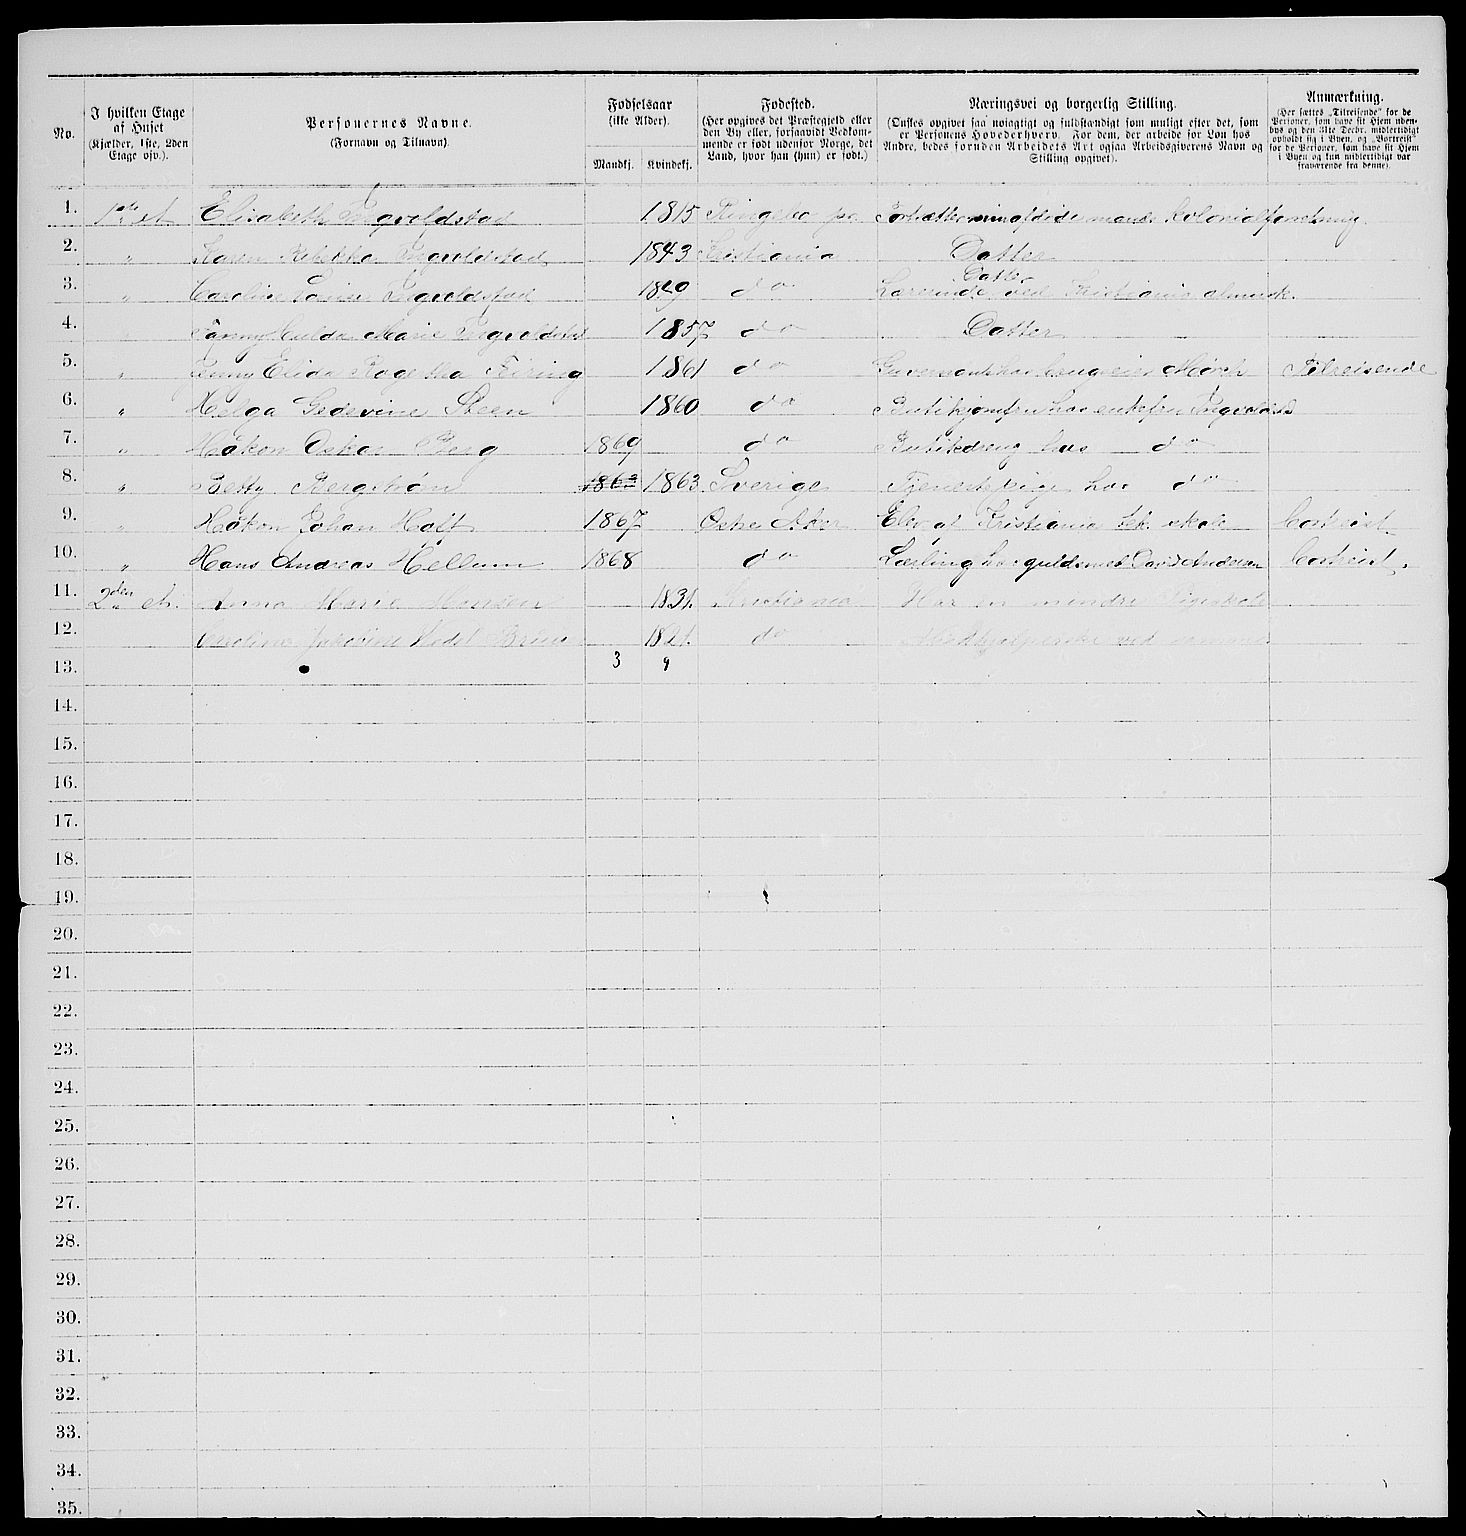 No.
I hvilken Etage af Huset (Kjælder, 1ste, 2den Etage osv.).
Personernes Navne.
(Fornavn og Tilnavn).
Fødselsaar (ikke Alder).
Mandkj. Kvindekj.
Fødested.
(Her opgives det Præstegjeld eller den By eller, forsaavidt Vedkommende er født udenfor Norge, det Land, hvor han (hun) er født.)
Næringsvei og borgerlig Stilling.
(Ønskes opgivet saa nøiagtigt og fuldstændigt som muligt efter det, som er Personens Hovederhverv. For dem, der arbeide for Løn hos Andre, bedes foruden Arbeidets Art ogsaa Arbeidsgiverens Navn og Stilling opgivet).
Anmærkning.
(Her sættes „Tilreisende" for de Personer, som have sit Hjem udenbys og den 31te Decbr. midlertidigt opholdt sig i Byen, og „Bortreist" for de Personer, som have sit Hjem i Byen og kun midlertidigt var fraværende fra denne).
1. 1ste et. Elisabeth Ingvoldstad 1815 Ringebo pr. Fortsætter min afdøde mands kolonialforretning
2. " Karen Rebekka Ingvoldstad 1843 Cristiania Datter
3. " Caroline Lovise Ingvoldstad 1849 do Datter Lærerinde ved Kristiania almuesk.
4. " Fanny Hulda Marie Ingvoldstad 1857 do Datter
5. " Elida Firing 1861 do Guvernante hos brugseier Mørch Tilreisende
6. " Helga Gedevine Steen 1860 do Butikjomfru hos enkefru Ingvoldstad
7. " Håkon Oskar Berg 1869 do Butikdreng hos do
8. " Betty Bergstrøm 1863 1863 Sverige Tjenestepige hos do
9. " Håkon Johan Hoff 1867 Østre Aker Elev af Kristiania tek. skole bortreist
10. " Hans Andreas Hellum 1868 do Lærling hos guldsmed David Andersen bortreist.
11. 2den et. Anna Marie Hansen 1831. Kristiania Har en mindre Pigeskole
12. Caroline 1821. do Medhjælperske ved samme
13. 3 9
14.
15.
16.
17.
18.
19.
20.
21.
22.
23.
24.
25.
26.
27.
28.
29.
30.
31.
32.
33.
34.
35.